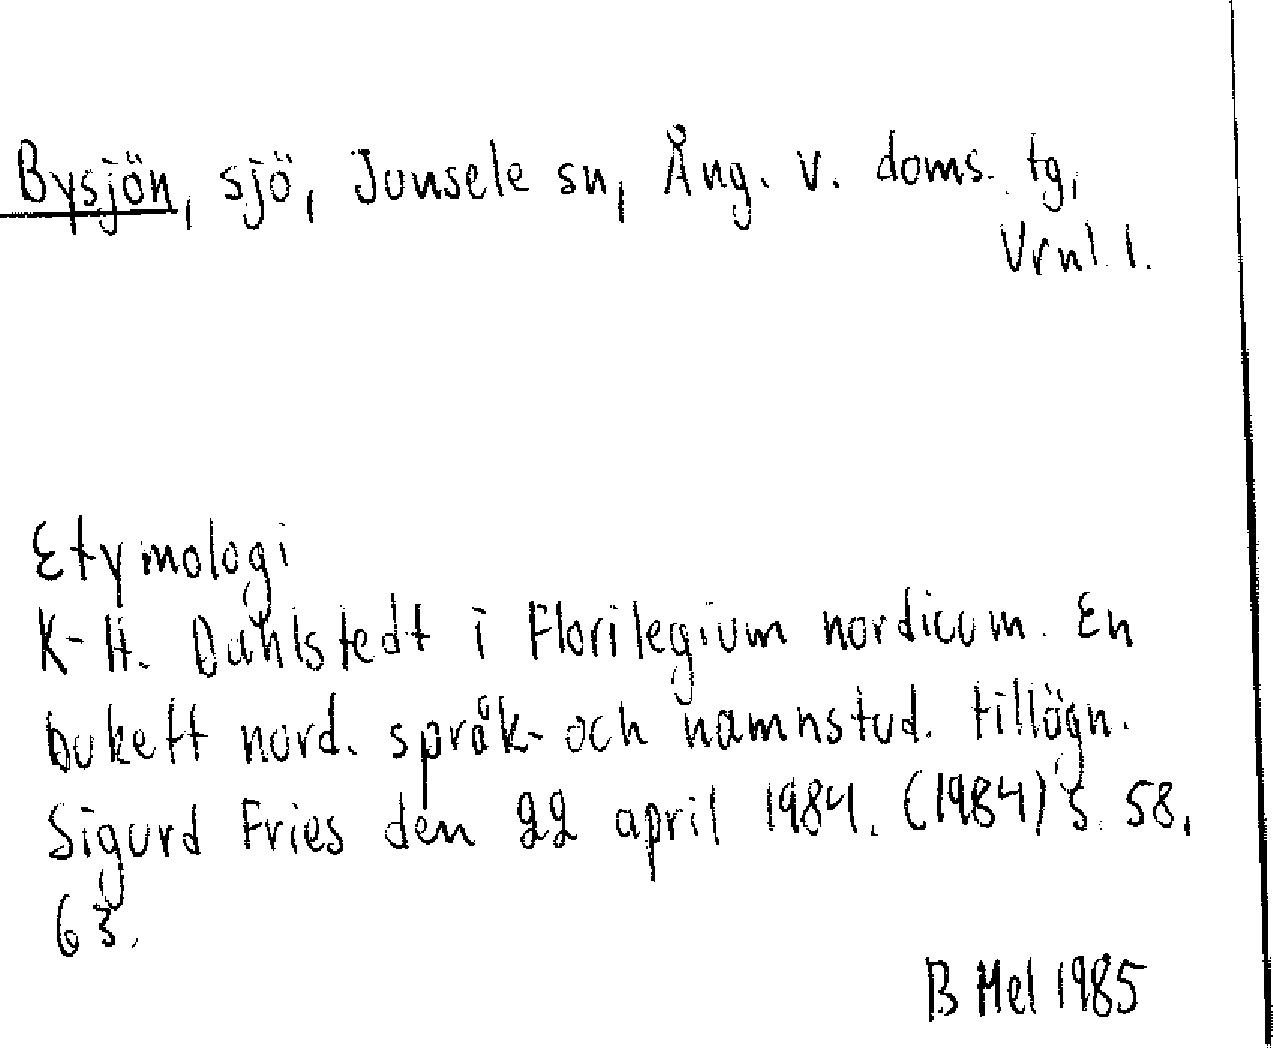 Bysjön, sjö, Junsele sn, Ång. v. doms. tg,
Vrnl. l.
Etymologi
K-H. Dahlstedt i Florilegium nordicum. En
bukett nord. språk- och namnstud. tillägn.
Sigurd Fries den 22 april 1984. (1984) s. 58,
63.
B Mel 1985